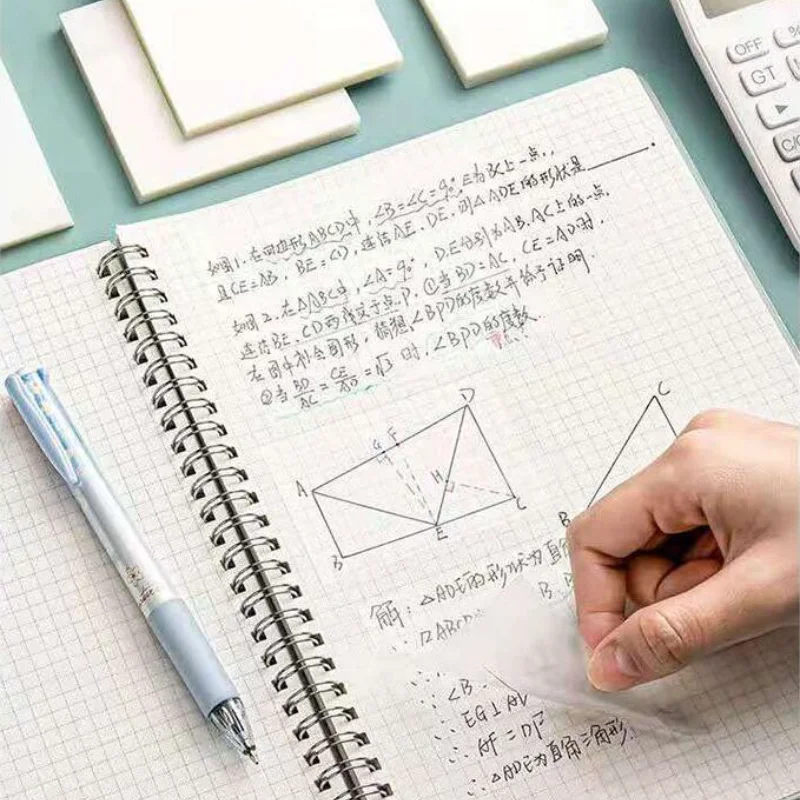 如图1.在四边形ABCD中,∠B=∠C=90°,E为BC上一点,
且CE=AB,BE=CD,连结AE、DE,则△ADE的形状是______.
如图2.在△ABC中,∠A=90° D.E分别为AB.AC上的一点,
连结BE、CD两线交于点P.①当BD=AC,CE=AD时,
在图中补全图形,猜想∠BPD的度数并给予证明.
②当BD/AC=CE/AD=√3时,∠BPD的度数
D
C
G F
A
H
C
E
B
B
解:△ADE的形状为直角
∵ □ABCD
∴
∴ ∠B
∴ EG⊥A
∴ AF=DF
∴ △ADE为直角三角形.
OFF
%
GT